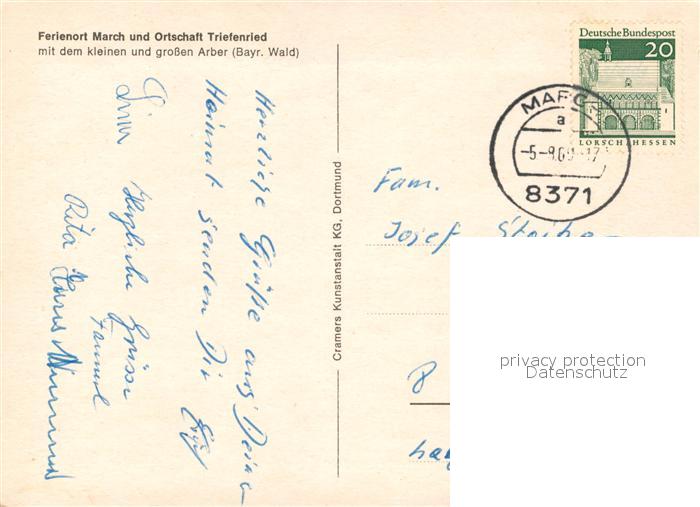 Ferienort March und Ortschaft Triefenried
mit dem kleinen und großen Arber (Bayr. Wald)
Deutsche Bundespost
20
LORSCH/HESSEN
MARC
a
-5-8.69-17
8371
Herzliche Grüße aus Deiner
Heimat senden Dir
Herzliche Grüsse
Rita Hans
Cramers Kunstanstalt KG, Dortmund
Fam.
Josef
8
privacy protection
Datenschutz